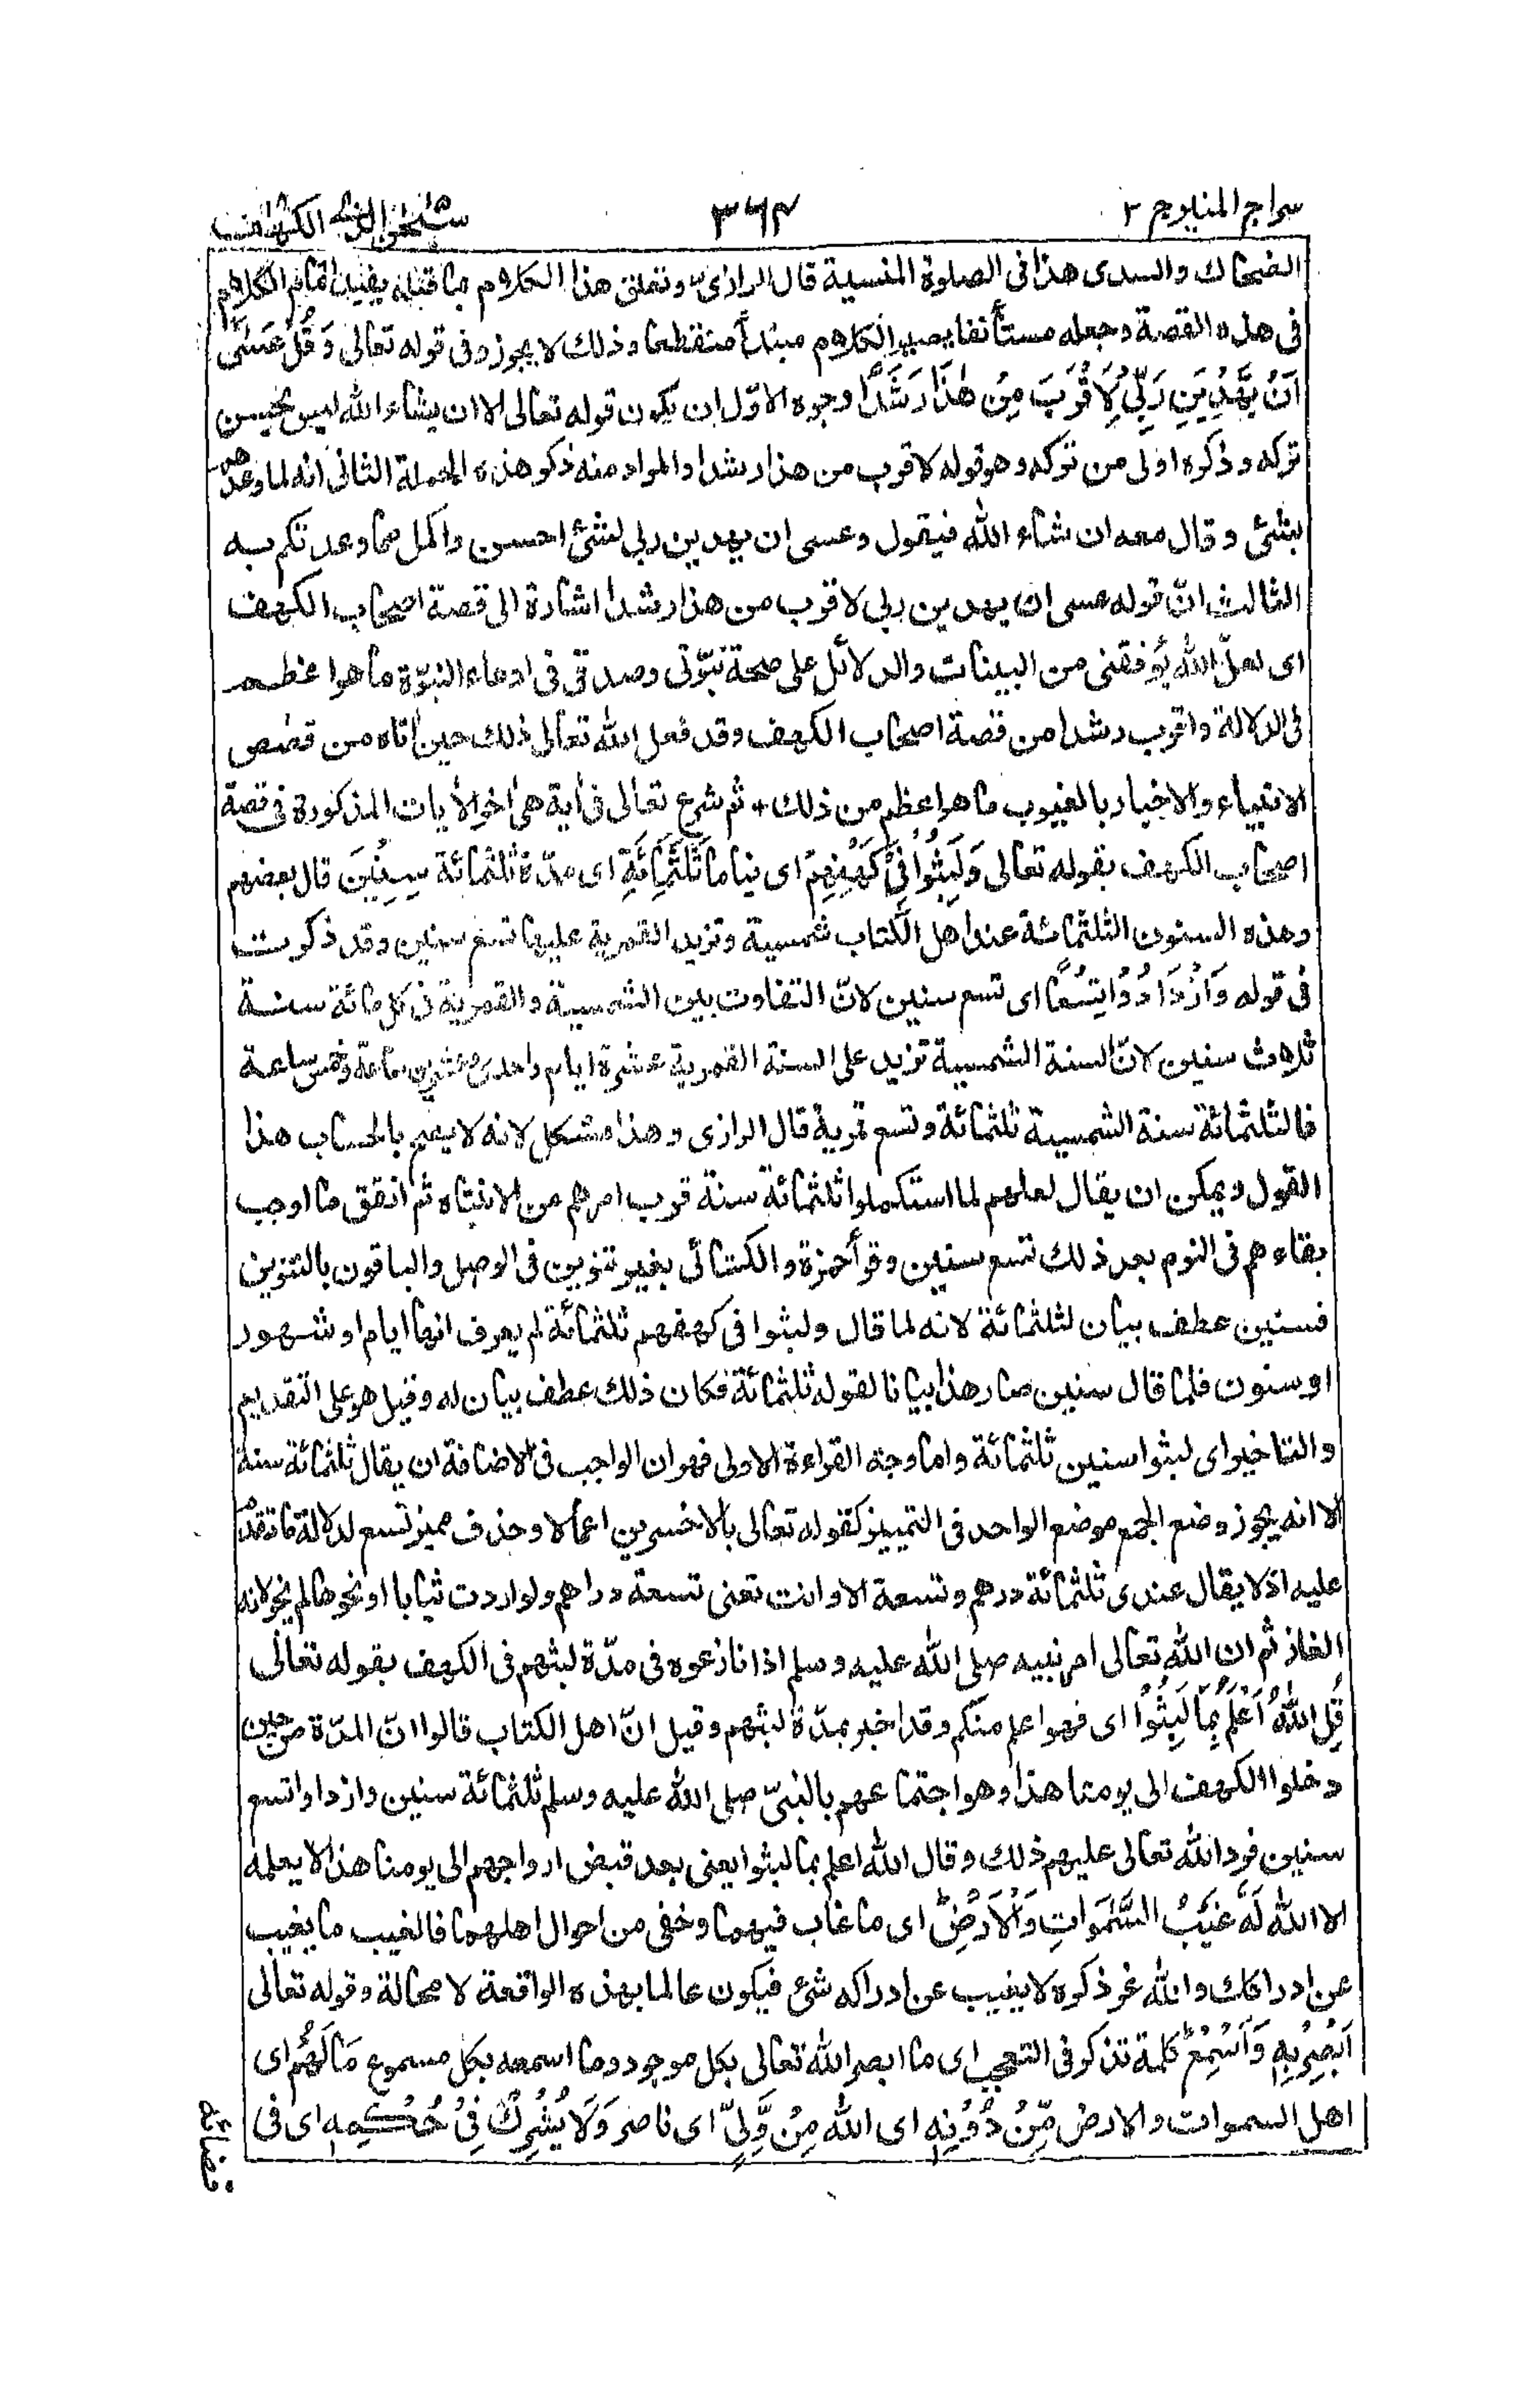 سراج المنير ج ٢
٣٦٤
الكهف
الضحاك والسدى هذا فى الصلوة المنسية قال الرازى وتعلق هذا الكلام بما قبله يفيد اتمام الكلام
فى هذه القصة وجعله مستأنفا يصير الكلام مبتدأ منقطعا وذلك لا يجوز وفى قوله تعالى وَقُلْ عَسٰٓى
اَنْ يَّهْدِيَنِ رَبِّيْ لِاَقْرَبَ مِنْ هٰذَا رَشَدًا وجوه الاوّل ان يكون قوله تعالى الا ان يشاء الله ليس بحسن
تركه وذكره اولى من تركه وهو قوله لاقرب من هذا رشدا والمراد منه ذكر هذه الجملة الثانى انه لما وعدهم
بشئ وقال معه ان شاء الله فيقول وعسى ان يهدين ربى لشئ احسن واكمل مما وعدتكم به
الثالث انّ قوله عسى ان يهدين ربى لاقرب من هذا رشدا اشارة الى قصة اصحاب الكهف
اى لعلّ الله يؤفقنى من البينات والدلائل على صحة نبوّتى وصدقى فى ادعاء النبوّة ما هو اعظم
فى الدلالة واقرب رشدا من قصة اصحاب الكهف وقد فعل الله تعالى ذلك حين اٰتاه من قصص
الانبياء والاخبار بالغيوب ما هو اعظم من ذلك + ثم شرع تعالى فى اٰية هى اٰخر الاٰيات المذكورة فى قصة
اصحاب الكهف بقوله تعالى وَلَبِثُوْا فِيْ كَهْفِهِمْ اى نياما ثَلٰثَمِائَةٍ اى مدّة ثلثمائة سِنِيْنَ قال بعضهم
وهذه السنون الثلثمائة عند اهل الكتاب شمسية وتزيد القمرية عليها تسع سنين وقد ذكرت
فى قوله وَازْدَادُوْا تِسْعًا اى تسع سنين لانّ التفاوت بين الشمسية والقمرية فى كل مائة سنة
ثلاث سنين لانّ السنة الشمسية تزيد على السنة القمرية عشرة ايام واحدى وعشرين ساعة وخمس ساعة
فالثلثمائة سنة الشمسية ثلثمائة وتسع قمرية قال الرازى وهذا مشكل لانه لا يصح بالحساب هذا
القول ويمكن ان يقال لعلهم لما استكملوا ثلثمائة سنة قرب امرهم من الانتباه ثم اتفق ما اوجب
بقاءهم فى النوم بعد ذلك تسع سنين وقرأ حمزة والكسائى بغير تنوين فى الوصل والباقون بالتنوين
فسنين عطف بيان لثلثمائة لانه لما قال ولبثوا فى كهفهم ثلثمائة لم يعرف انها ايام او شهور
او سنون فلما قال سنين صار هذا بيانا لقوله ثلثمائة فكان ذلك عطف بيان له وقيل هو على التقديم
والتاخير اى لبثوا سنين ثلثمائة واما وجه القراءة الاولى فهو ان الواجب فى الاضافة ان يقال ثلثمائة سنة
الا انه يجوز وضع الجمع موضع الواحد فى التمييز كقوله تعالى بالاخسرين اعمالا وحذف مميز تسع لدلالة ما تقدّم
عليه اذ لا يقال عندى ثلثمائة درهم وتسعة الا وانت تعنى تسعة دراهم ولو اردت ثيابا او نحوها لم يجز لانه
الغاز ثم ان الله تعالى امر نبيه صلى الله عليه وسلم اذا نازعوه فى مدّة لبثهم فى الكهف بقوله تعالى
قُلِ اللّٰهُ اَعْلَمُ بِمَا لَبِثُوْا اى فهو اعلم منكم وقد اخبر بمدّة لبثهم وقيل انّ اهل الكتاب قالوا انّ المدّة من حين
دخلوا الكهف الى يومنا هذا وهو اجتماعهم بالنبىّ صلى الله عليه وسلم ثلثمائة سنين وازدادوا تسع
سنين فرد الله تعالى عليهم ذلك وقال الله اعلم بما لبثوا يعنى بعد قبض ارواحهم الى يومنا هذا لا يعلمه
الا الله لَهٗ غَيْبُ السَّمٰوَاتِ وَالْاَرْضِ اى ما غاب فيهما وخفى من احوال اهلهما فالغيب ما يغيب
عن ادراكك والله عز ذكره لا يغيب عن ادراكه شئ فيكون عالما بهذه الواقعة لا محالة وقوله تعالى
اَبْصِرْ بِهٖ وَاَسْمِعْ كلمة تذكر فى التعجب اى ما ابصر الله تعالى بكل موجود وما اسمعه بكل مسموع مَا لَهُمْ اى
اهل السموات والارض مِّنْ دُوْنِهٖ اى الله مِنْ وَّلِيٍّ اى ناصر وَلَا يُشْرِكُ فِيْ حُكْمِهٖ اى فى
قضائه